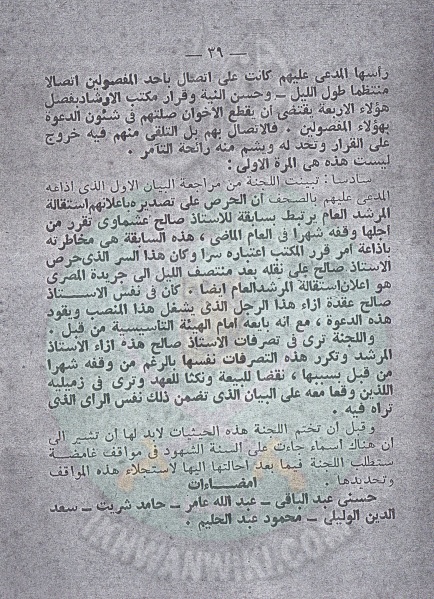 — ٣٩ —
رأسها المدعى عليهم كانت على اتصال بأحد المفصولين اتصالا
منتظما طول الليل ــ وحسن النية وقرار مكتب الاوشاد بفصل
هؤلاء الاربعة يقتضى أن يقطع الأخوان صلتهم فى شئون الدعوة
بهؤلاء المفصولين ٠ فالاتصال بهم بل التلقى منهم فيه خروج
على القرار وتحد له ويشم منه رائحة التآمر ٠
ليست هذه هى المرة الاولى :
سادسا : تبينت اللجنة من مراجعة البيان الاول الذى اذاعه
المدعى عليهم بالصحف أن الحرص على تصديره باعلانهم استقالة
المرشد العام يرتبط بسابقة للاستاذ صالح عشماوى تقرر من
أجلها وقفه شهرا فى العام الماضى ، هذه السابقة هى مخاطرته
باذاعة أمر قرر المكتب اعتباره سرا وكان هذا السر الذى حرص
الاستاذ صالح على نقله بعد منتصف الليل الى جريدة المصرى
هو اعلان استقالة المرشد العام ايضا ٠ كأن فى نفس الاســـتاذ
صالح عقدة ازاء هذا الرجل الذى يشغل هذا المنصب ويقود
هذه الدعوة ، مع انه بايعه امام الهيئة التأسيسية من قبل ٠
واللجنة ترى فى تصرفات الاستاذ صالح هذه ازاء الاستاذ
المرشد وتكرر هذه التصرفات نفسها بالرغم من وقفه شهرا
من قبل بسببها ، نقضا للبيعة ونكثا للعهد وترى فى زميليه
اللذين وقعا معه على البيان الذى تضمن ذلك نفس الرأى الذى
تراه فيه ٠
وقبل أن تختم اللجنة هذه الحيثيات لابد لها أن تشير الى
أن هناك أسماء جاءت على ألسنة الشهود فى مواقف غامضـة
ستطلب اللجنة فيما بعد احالتها اليها لاستجلاء هذه المواقف
وتحديدها ٠
امضـــاءات
حسنى عبد الباقى ــ عبد الله عامر ــ حامد شريت ــ سعد
الدين الوليلى ــ محمود عبد الحليم ٠
IKHWANWIKI.COM